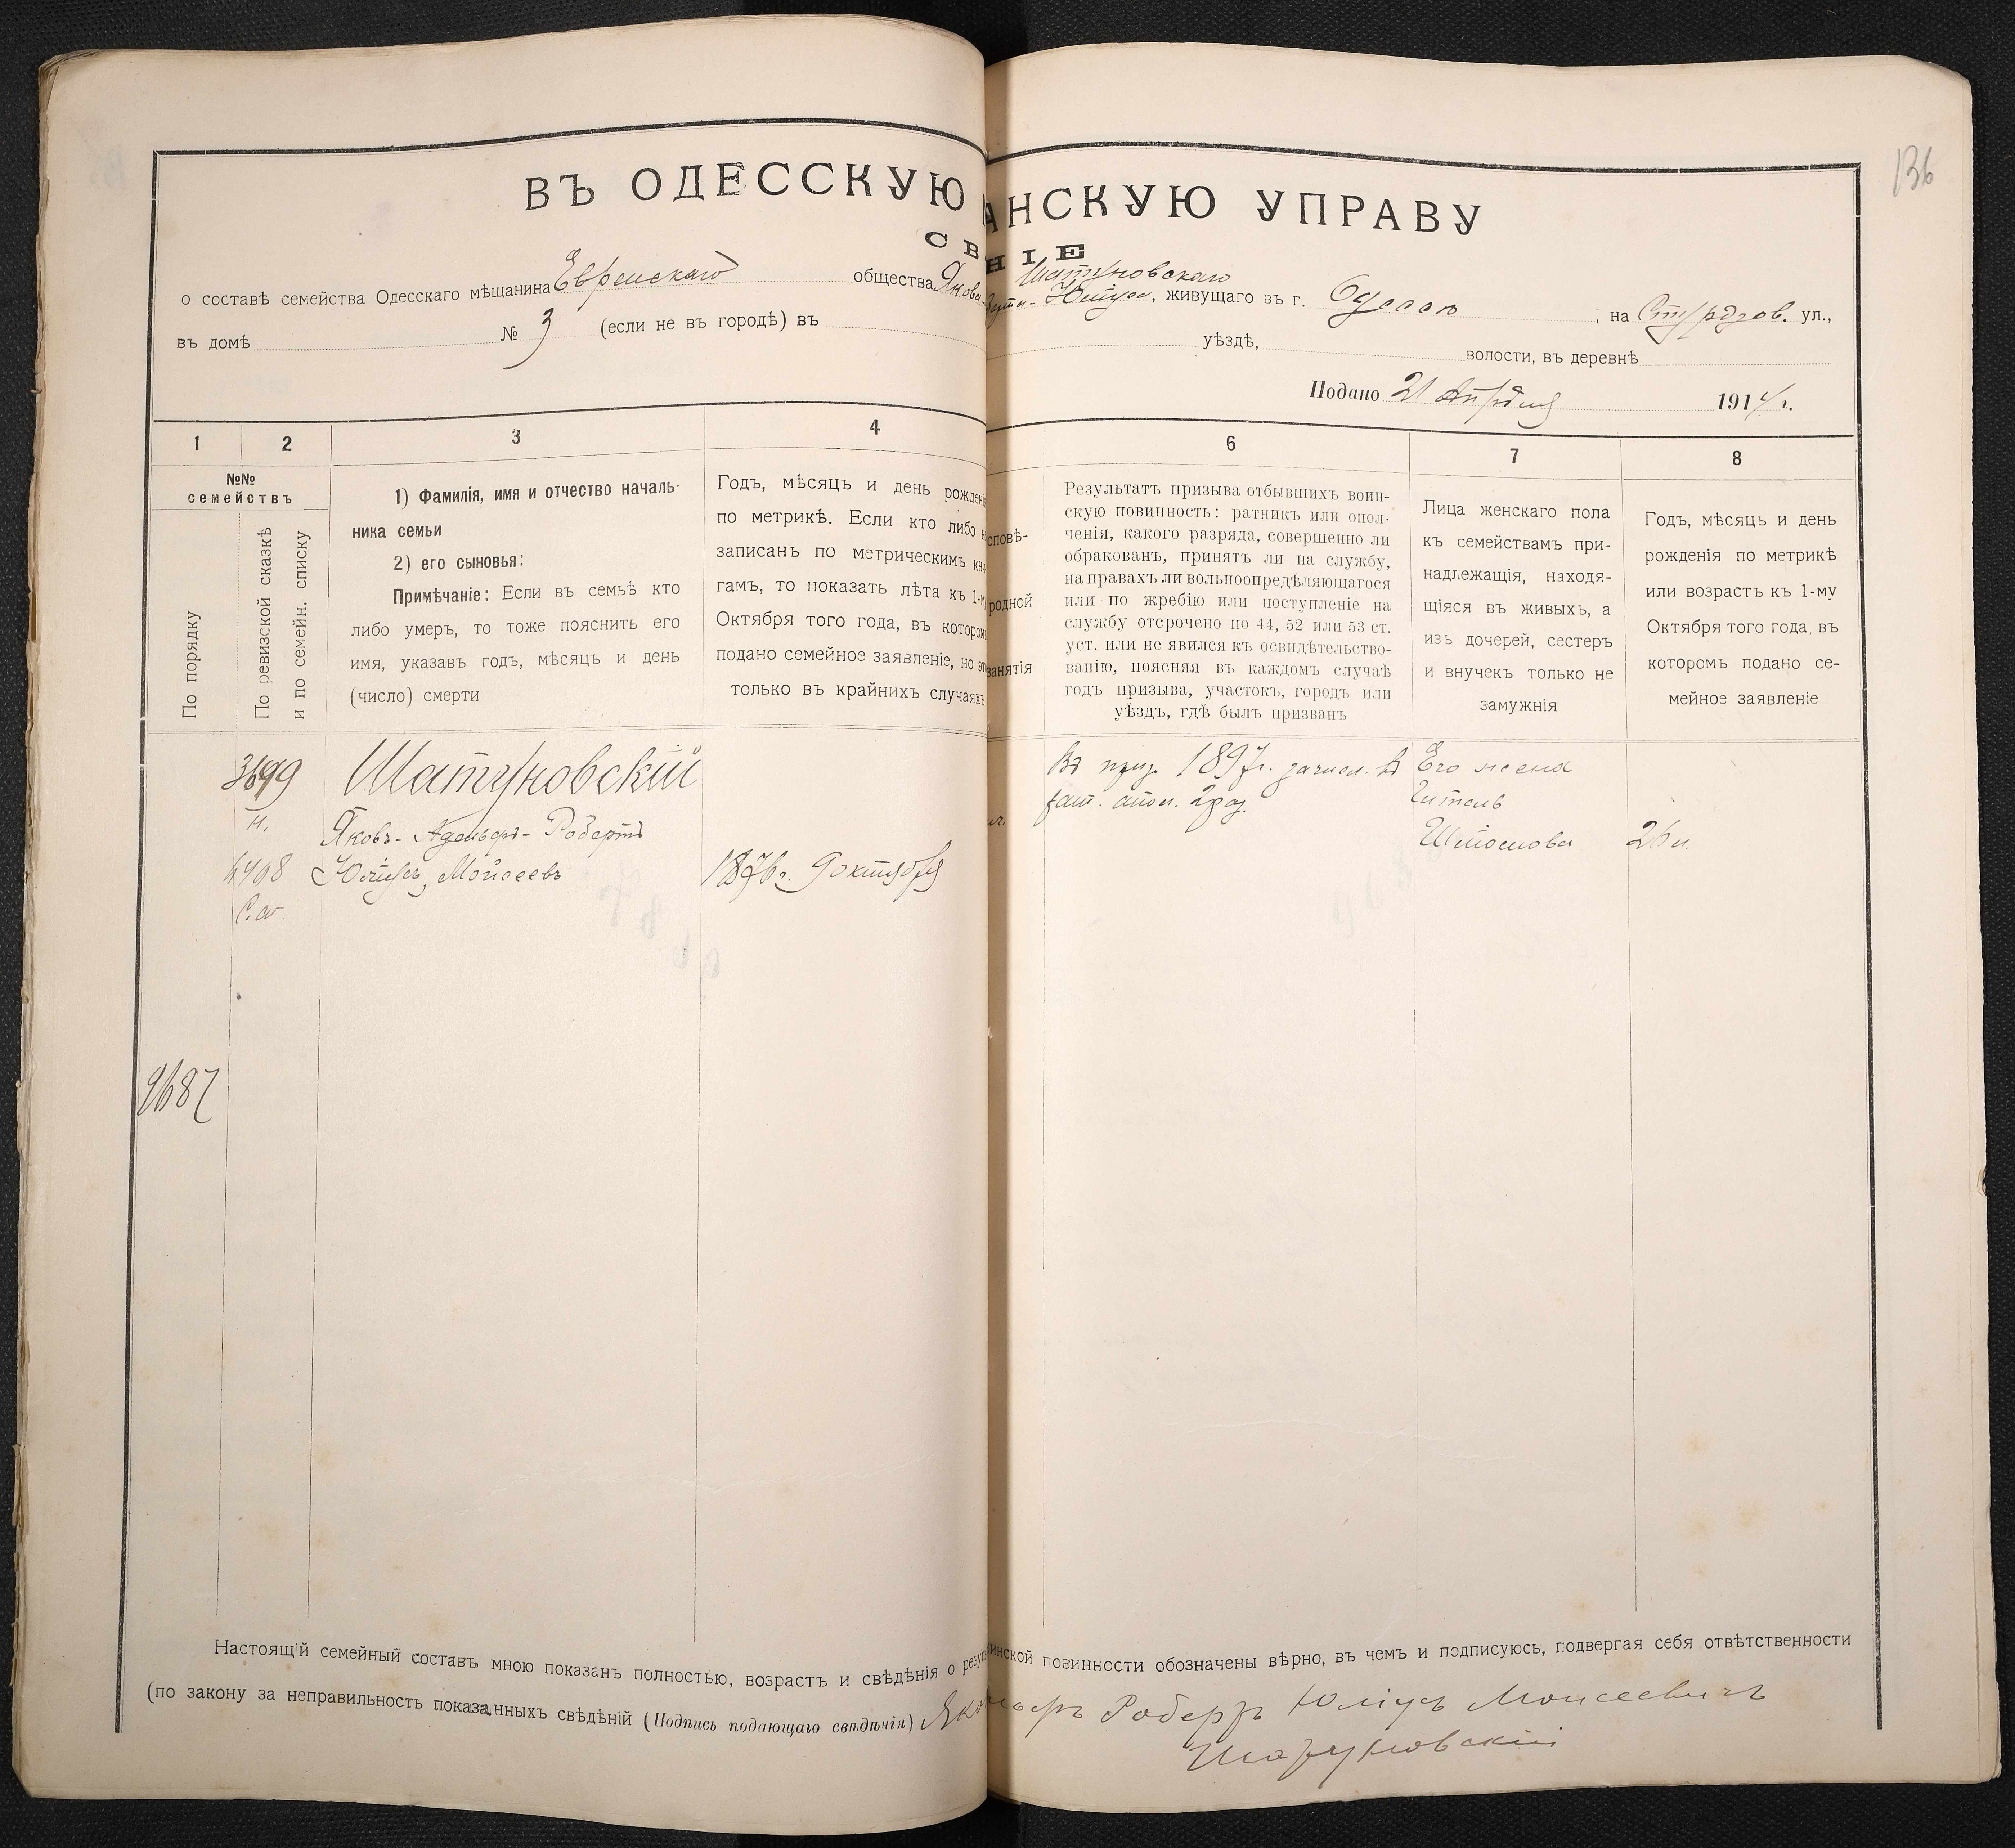 136
ВЪ ОДЕССКУЮ АНСКУЮ УПРАВУ
СВ НІЕ
Шатуновскаго
о составѣ семейства Одесскаго мѣщанина Еврейскаго общества Якова- Юліуса, живущаго въ г. Одессѣ, на Стурдзов. ул.,
въ домѣ № 3 (если не въ городѣ) въ уѣздѣ, волости, въ деревнѣ
Подано 21 Апрѣля 1914 г.
1 2 3 4 6 7 8
№№
семействъ
По порядку
По ревизской сказкѣ
и по семейн. списку
1) Фамилія, имя и отчество началь-
ника семьи
2) его сыновья:
Примѣчаніе: Если въ семьѣ кто
либо умеръ, то тоже пояснить его
имя, указавъ годъ, мѣсяцъ и день
(число) смерти
Годъ, мѣсяцъ и день рожденія
по метрикѣ. Если кто либо н
записанъ по метрическимъ кни
гамъ, то показать лѣта къ 1-му
Октября того года, въ котором
подано семейное заявленіе, но эт
только въ крайнихъ случаяхъ
сповѣ-
родной
занятія
Результатъ призыва отбывшихъ воин-
скую повинность: ратникъ или опол-
ченія, какого разряда, совершенно ли
обракованъ, принятъ ли на службу,
на правахъ ли вольноопредѣляющагося
или по жребію или поступленіе на
службу отсрочено по 44, 52 или 53 ст.
уст. или не явился къ освидѣтельство-
ванію, поясняя въ каждомъ случаѣ
годъ призыва, участокъ, городъ или
уѣздъ, гдѣ былъ призванъ
Лица женскаго пола
къ семействамъ при-
надлежащія, находя-
щіяся въ живыхъ, а
изъ дочерей, сестеръ
и внучекъ только не
замужнія
Годъ, мѣсяцъ и день
рожденія по метрикѣ
или возрастъ къ 1-му
Октября того года, въ
которомъ подано се-
мейное заявленіе
3699
н.
6468
Шатуновскій
Яковъ-Адольфъ-Робертъ
Юліусъ Мойсеевъ
1876 г. 9 октября
Въ приз. 1897 г. зачисл. въ
рат. опол. 2 раз.
Его жена
Гитель
26 л.
9687
Настоящій семейный составъ мною показанъ полностью, возрастъ и свѣдѣнія о резул инской повинности обозначены вѣрно, въ чемъ и подписуюсь, подвергая себя отвѣтственности
(по закону за неправильность показанныхъ свѣдѣній (Подпись подающаго свѣдѣнія) Яко льфъ Робертъ Юліусъ Моисеевичъ
Шатуновскій